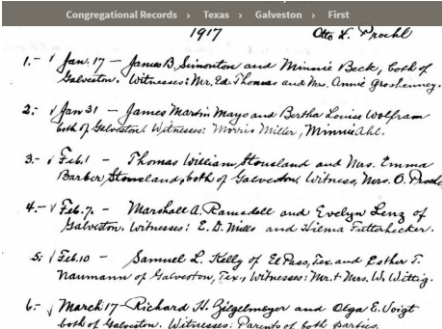 Congregational Records › Texas › Galveston › First
1917 Otto L. Proehl
1.- Jan. 17 - James B. Simonton and Minnie Beck, both of
Galveston. Witnesses: Mr. Ed. Thomas and Mrs. Annie
2.- Jan 31 - James Martin Mayo and Bertha Louise Wolfram
both of Galveston. Witnesses: Morris Miller, Minnie Ahl.
3.- Feb. 1 - Thomas William, and Mrs. Emma
Barber, both of Galveston, Witness, Mrs. O.
4.- Feb. 7. - Marshall A. Ramsdell and Evelyn Lenz of
Galveston. Witnesses: E. D. Mills and Hilma
5.- Feb. 10 - Samuel L. Kelly of El Paso, Tex. and Esther T.
Naumann of Galveston, Tex., Witnesses: Mr. & Mrs. W. Wittig.
6.- March 17 - Richard H. and Olga E. Voigt
both of Galveston. Witnesses: Parents of both Parties.